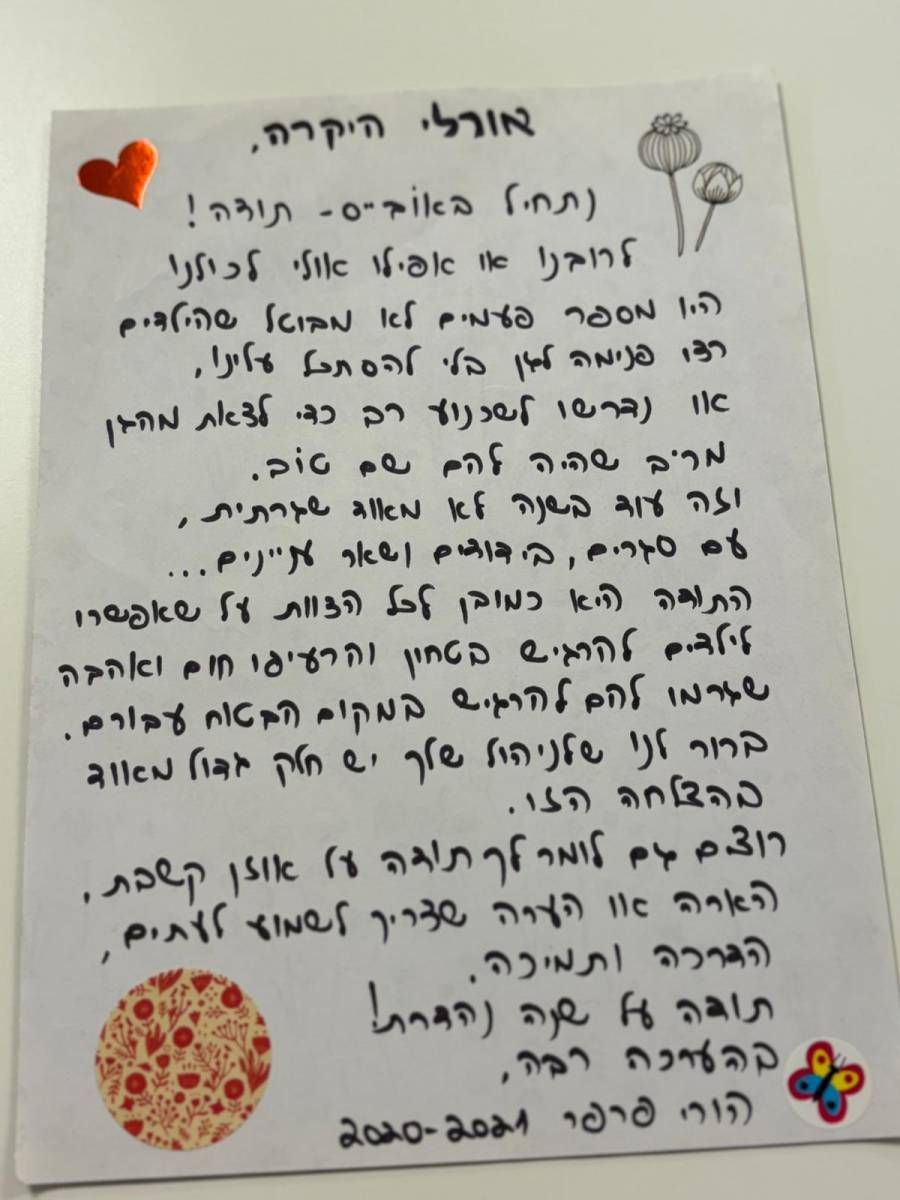 אורלי היקרה,
נתחיל באוֹבייס- תודה!
לרובנו או אפילו אולי לכולנו
היו מספר פעמים לא מבוטל שהילדים
רצו פנימה לגן בלי להסתכל עלינו,
או נדרשו לשכנוע רב כדי לצאת מהגן
מרוב שהיה להם שם טוֹב.
וזה עוד בשנה לא מאוד שגרתית,
עם סגרים, בידודים ושאר עניינים...
התודה היא כמובן לכל הצוות על שאפשרו
לילדים להרגיש בטחון והרעיפו חום ואהבה
שגרמו להם להרגיש במקום הבטוח עבורם.
ברור לנו שלניהול שלך יש חלק גדול מאוד
בהצלחה הזו.
רוצים גם לומר לך תודה על אוזן קשבת,
הארה או הערה שצריך לשמוע לעתים,
הדרכה ותמיכה.
תודה על שנה נהדרת!
בהערכה רבה,
הורי פרפר 2020-2021